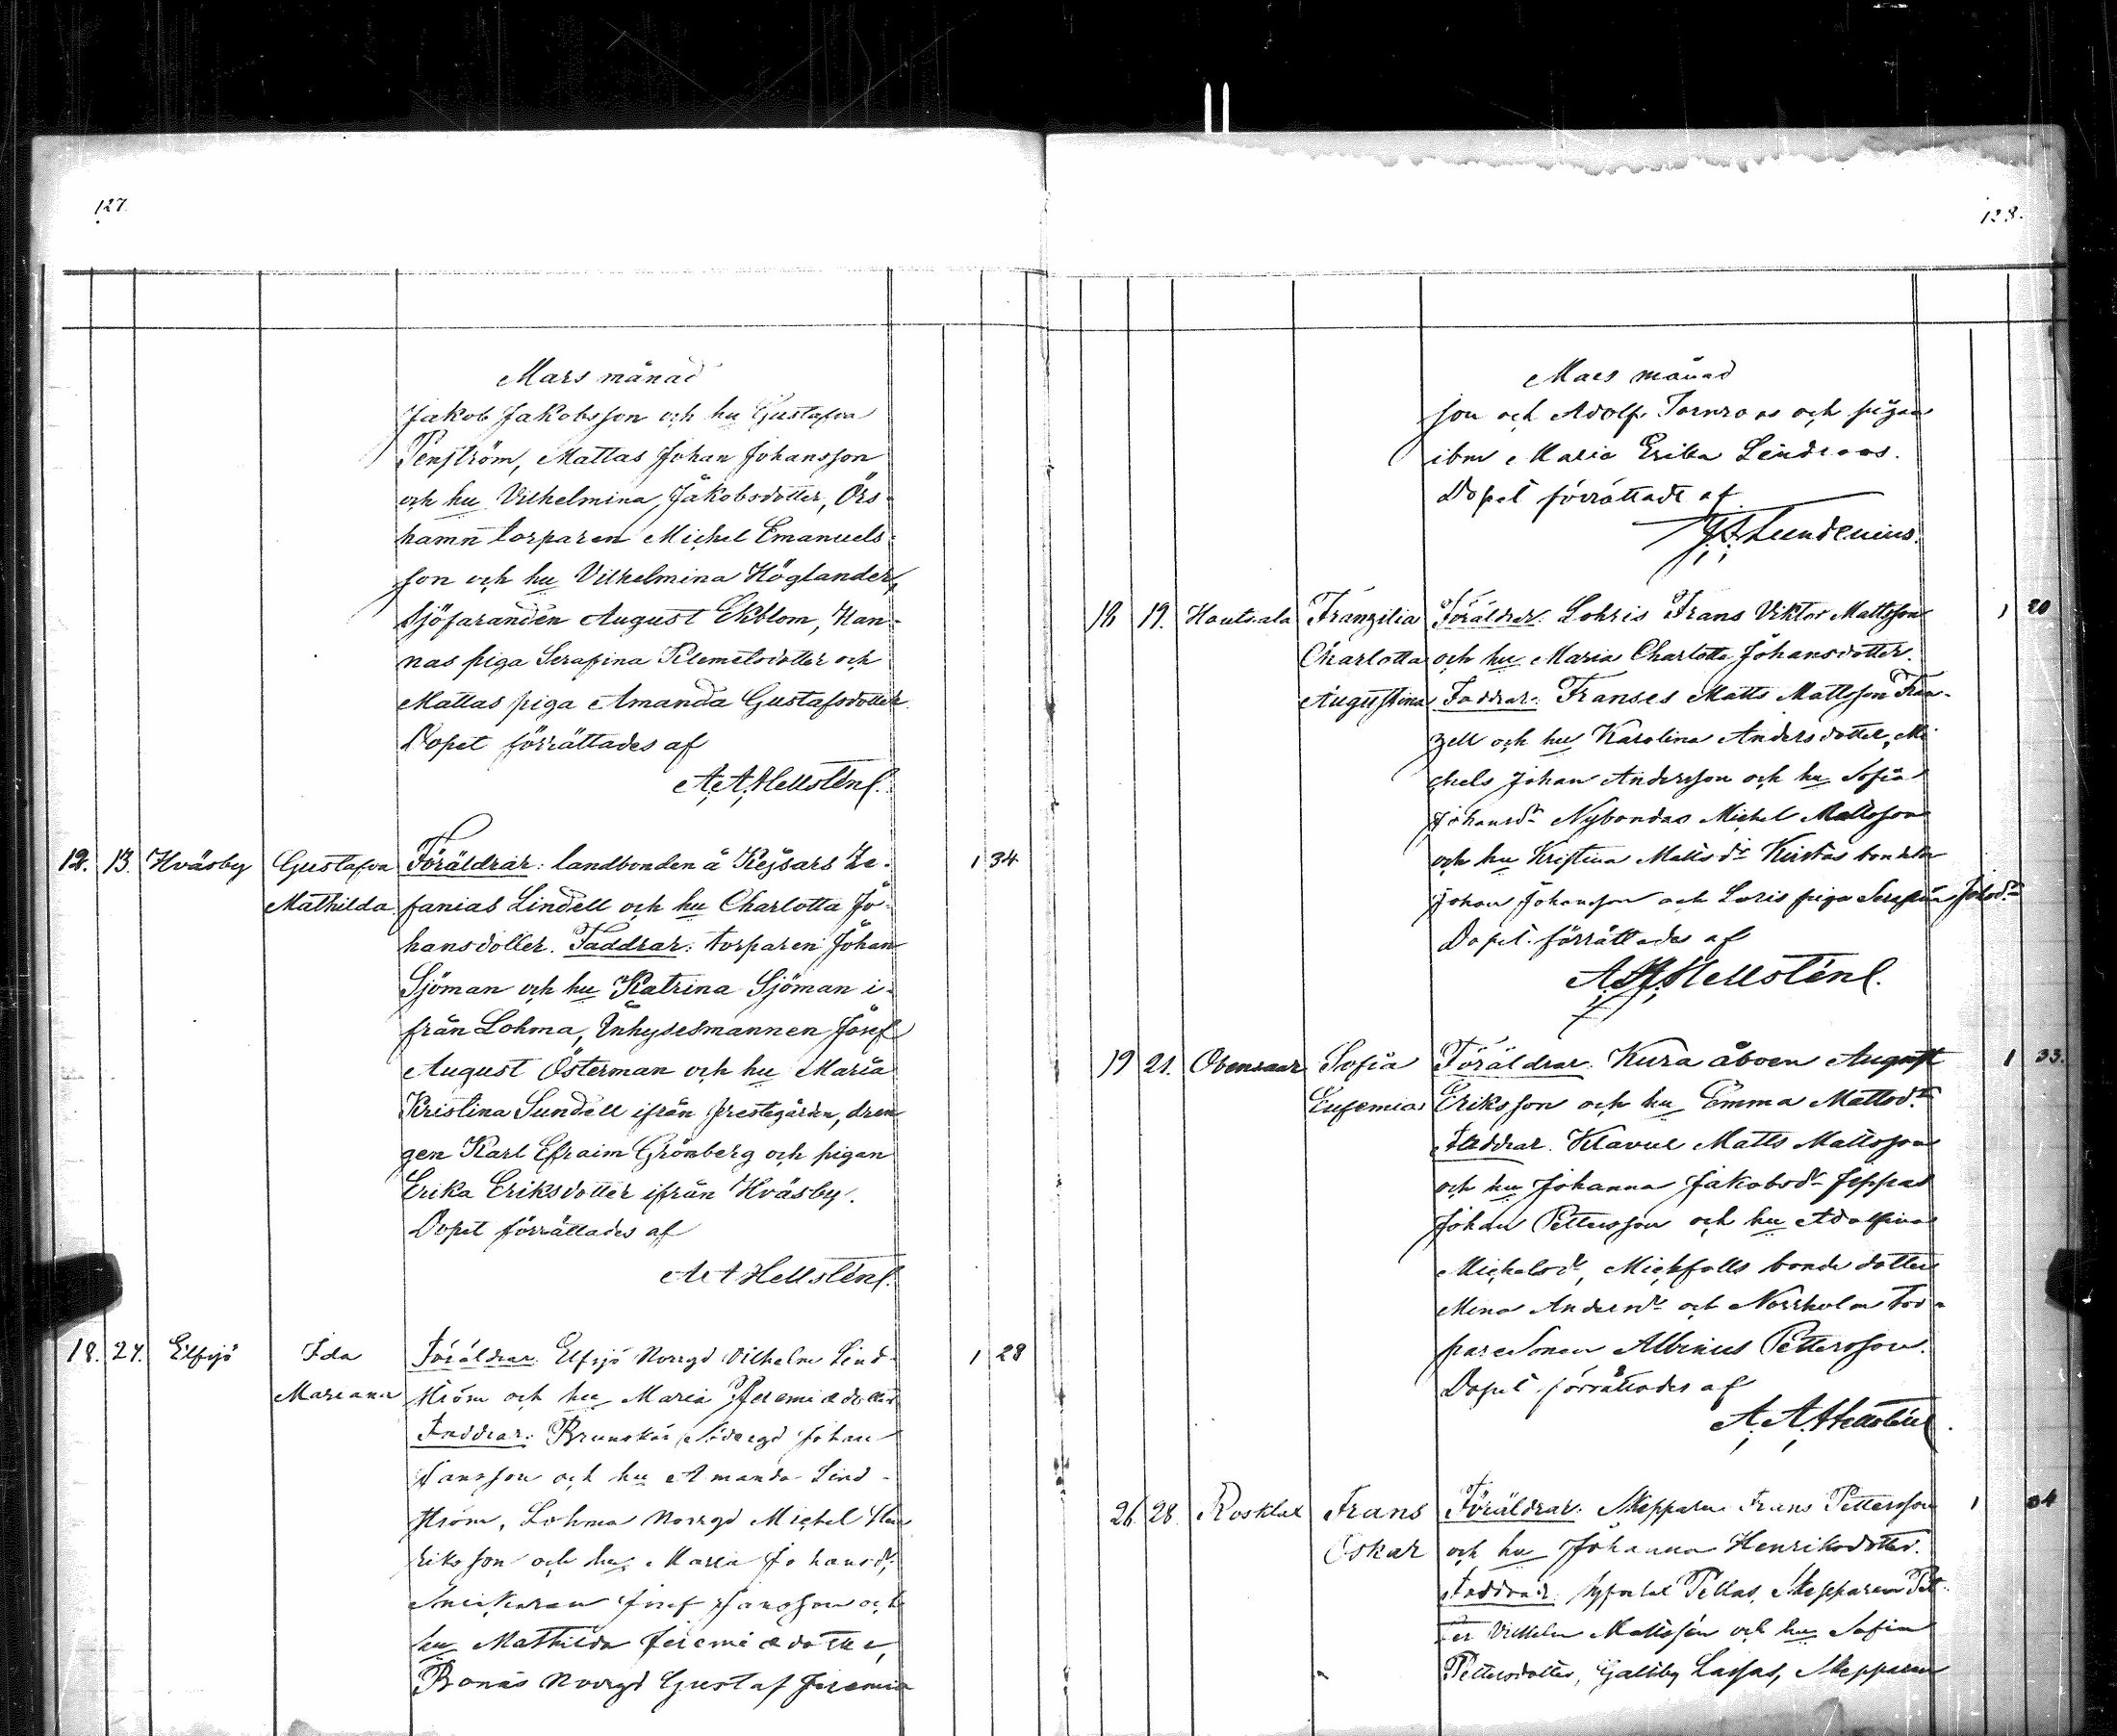 127.
Mars månad
Jakob Jakobsson och hu Gustafva
Penström, Mattas Johan Johansson
och hu Vilhelmina Jakobsdotter, Örs-
hamn torparen Michel Emanuels-
son och hu Vilhelmina Höglander,
Sjöfaranden August Ekblom, Han-
nas piga Serafina Klemetsdotter och
Mattas piga Amanda Gustafsdotter
Dopet förrättades af
A. A. Hellstén
12. 13. Hväsby Gustafva Föräldrar: landbonden å Kejsars Ze- 1 34
Mathilda fanias Lindell och hu Charlotta Jo-
hansdotter. Faddrar: torparen Johan
Sjöman och hu Katrina Sjöman i-
från Lohma, Inhysesmannen Josef
August Österman och hu Maria
Kristina Sundell ifrån prestegården, dren
gen Karl Efraim Grönberg och pigan
Erika Eriksdotter ifrån Hväsby.
Dopet förrättades af
A A Hellstén
18. 24. Elfsjö Ida Föräldrar: Elfsjö Norrgd Vilhelm Lind- 1 28
Mariana ström och hu Maria Jeremiædotter
Faddrar: Brunskär Södergd Johan
Jansson och hu Amanda Lind-
ström, Lohma Norrgd Michel
Eriksson och hu Maria Johansdr,
Snickaren Josef Jansson och
hu Mathilda Jeremiædotter,
Bonäs Norrgd Gustaf Jeremia
128.
Mars månad
son och Adolf Törnroos och pigan
ibm Maria Erika Lindroos.
Dopet förrättadt af
Lundenius.
18 19. Hautsala Franzilia Föräldrar: Lohris Frans Viktor Mattsson 1 20
Charlotta och hu Maria Charlotta Johansdotter.
Augustina Faddrar: Franses Matts Mattsson Fran-
zell och hu Karolina Andersdotter, Mi-
chels Johan Andersson och hu Sofia
Johansdr Nybondas Michel Mattsson
och hu Kristina Mattsdr Kustas
Johan Johansson och Loris piga Serafina Johsdr
Dopet förrättades af
A. A. Hellstén
19 21. Obensaar Sofia Föräldrar. Kura åboen August 1 33.
Eufemia Eriksson och hu Emma Mattsdr
Faddrar. Klavus Matts Mattsson
och hu Johanna Jakobsdr Jeppas
Johan Pettersson och hu Adolfina
Michelsdr, Michfolls bonde dotter
Mina Andersdr och Norrholm tor-
pare sonen Albinus Pettersson.
Dopet förrättades af
A. A. Hellstén
26 28. Rosklax Frans Föräldrar: Skepparen Frans Pettersson 1 34
Oskar och hu Johanna Henriksdotter.
Faddrar: Pellas, Skepparen Pet-
ter Vilhelm Mattsson och hu Sofia
Pettersdotter, Galtby Lassas, Skepparen